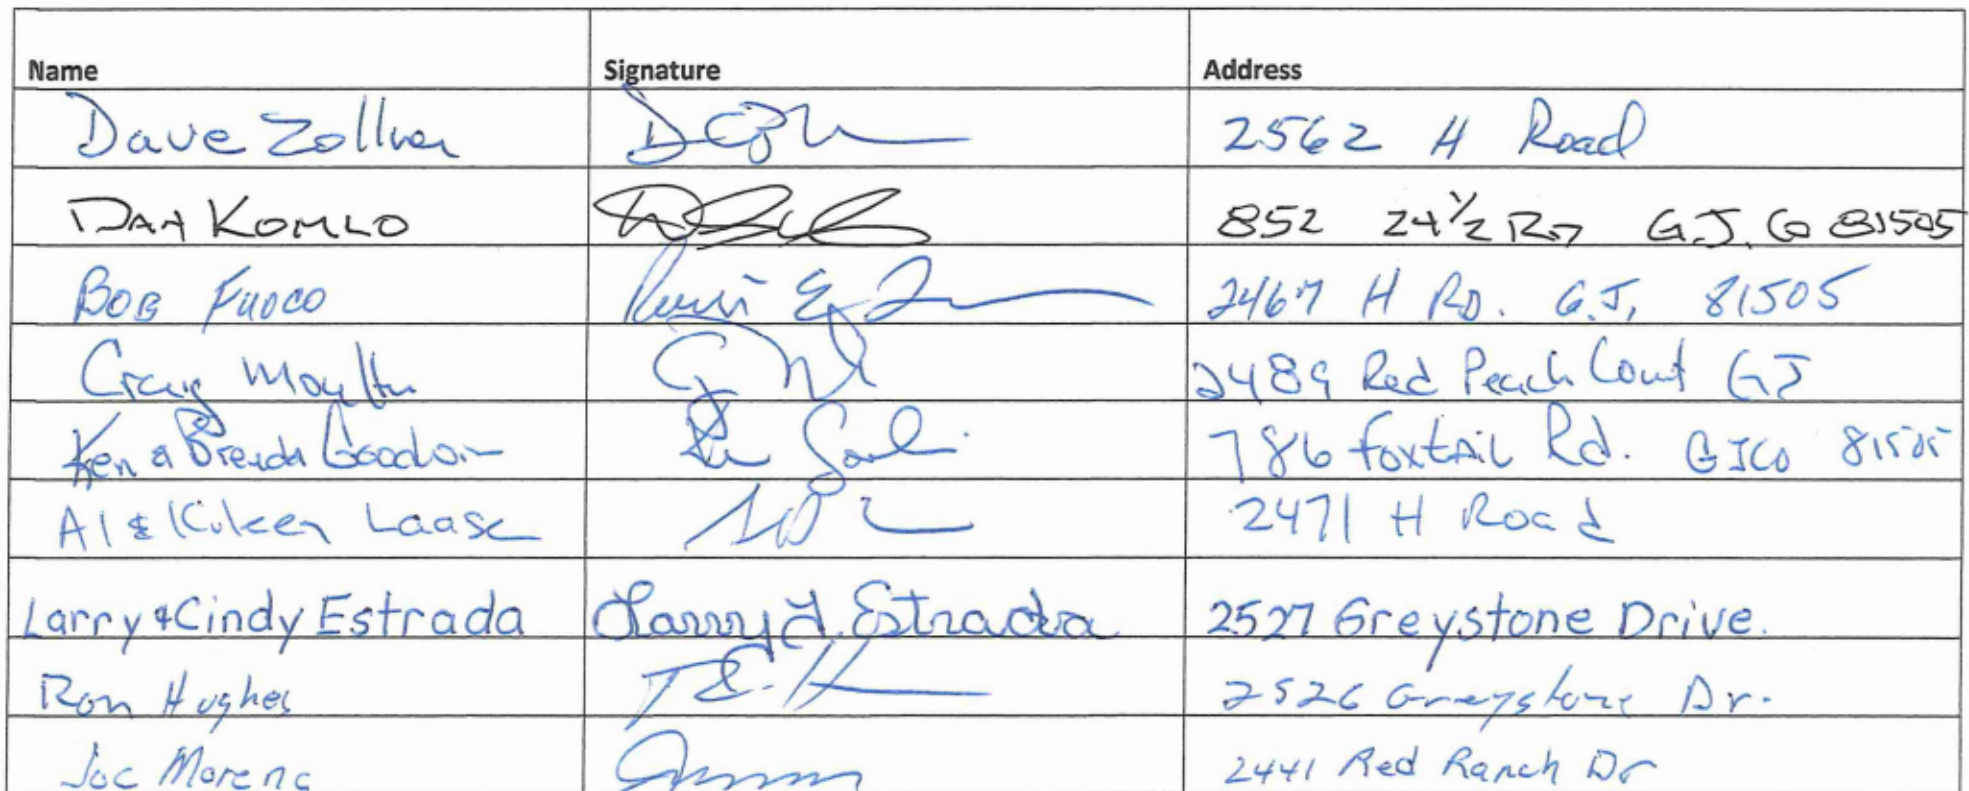 Name Signature Address
Dave Zollner 2562 H Road
DAN KOMLO 852 24½ RD G.J. CO 81505
BOB FUOCO 2467 H RD. G.J. 81505
Craig Moulton 2489 Red Peach Court GJ
Ken & Brenda Goodwin 786 Foxtail Rd. GJCO 81505
Al & Kileen Laase 2471 H Road
Larry & Cindy Estrada Larry J. Estrada 2527 Greystone Drive.
Ron Hughes 2526 Greystone Dr.
Joe Moreno 2441 Red Ranch Dr